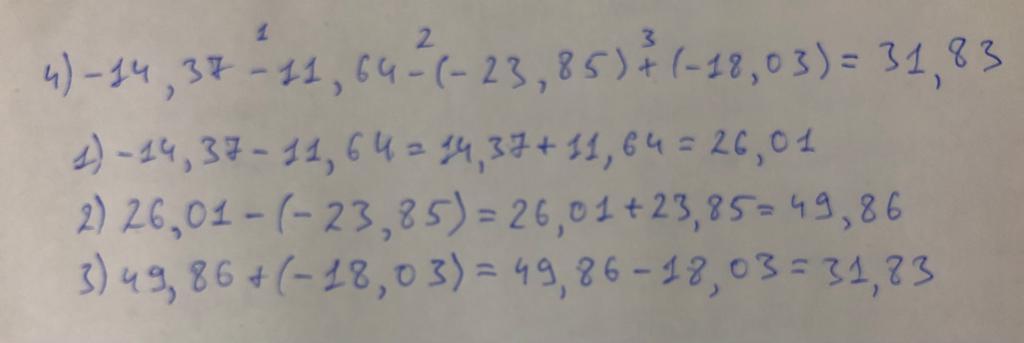 1 2 3
4) -14,37 - 11,64 - (-23,85) + (-18,03) = 31,83
1) -14,37 - 11,64 = 14,37 + 11,64 = 26,01
2) 26,01 - (-23,85) = 26,01 + 23,85 = 49,86
3) 49,86 + (-18,03) = 49,86 - 18,03 = 31,83